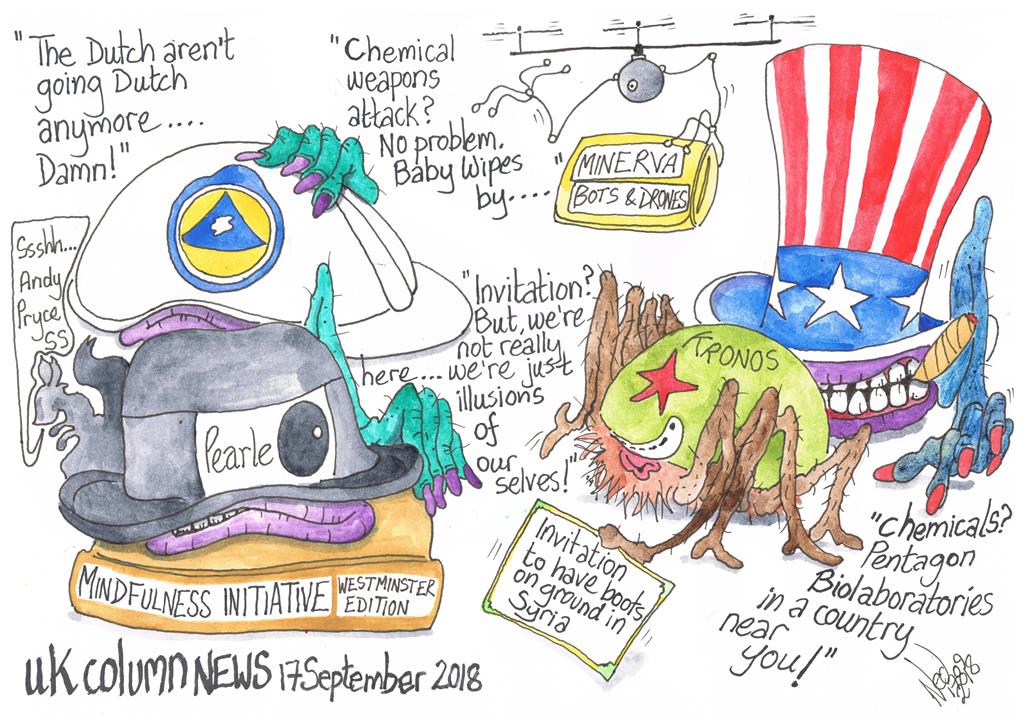 "The Dutch aren't
going Dutch
anymore....
Damn!"
"Chemical
weapons
attack?
No problem.
Baby Wipes
by...."
MINERVA
BOTS & DRONES
Ssshh...
Andy
Pryce
ss
"Invitation?
But, we're
not really
here.... we're just
illusions
of
our
selves!"
TRONOS
Pearle
Invitation
to have boots
on ground in
Syria
"Chemicals?
Pentagon
Biolaboratories
in a country
near
you!"
MINDFULNESS INITIATIVE
WESTMINSTER
EDITION
UK COLUMN NEWS 17 September 2018